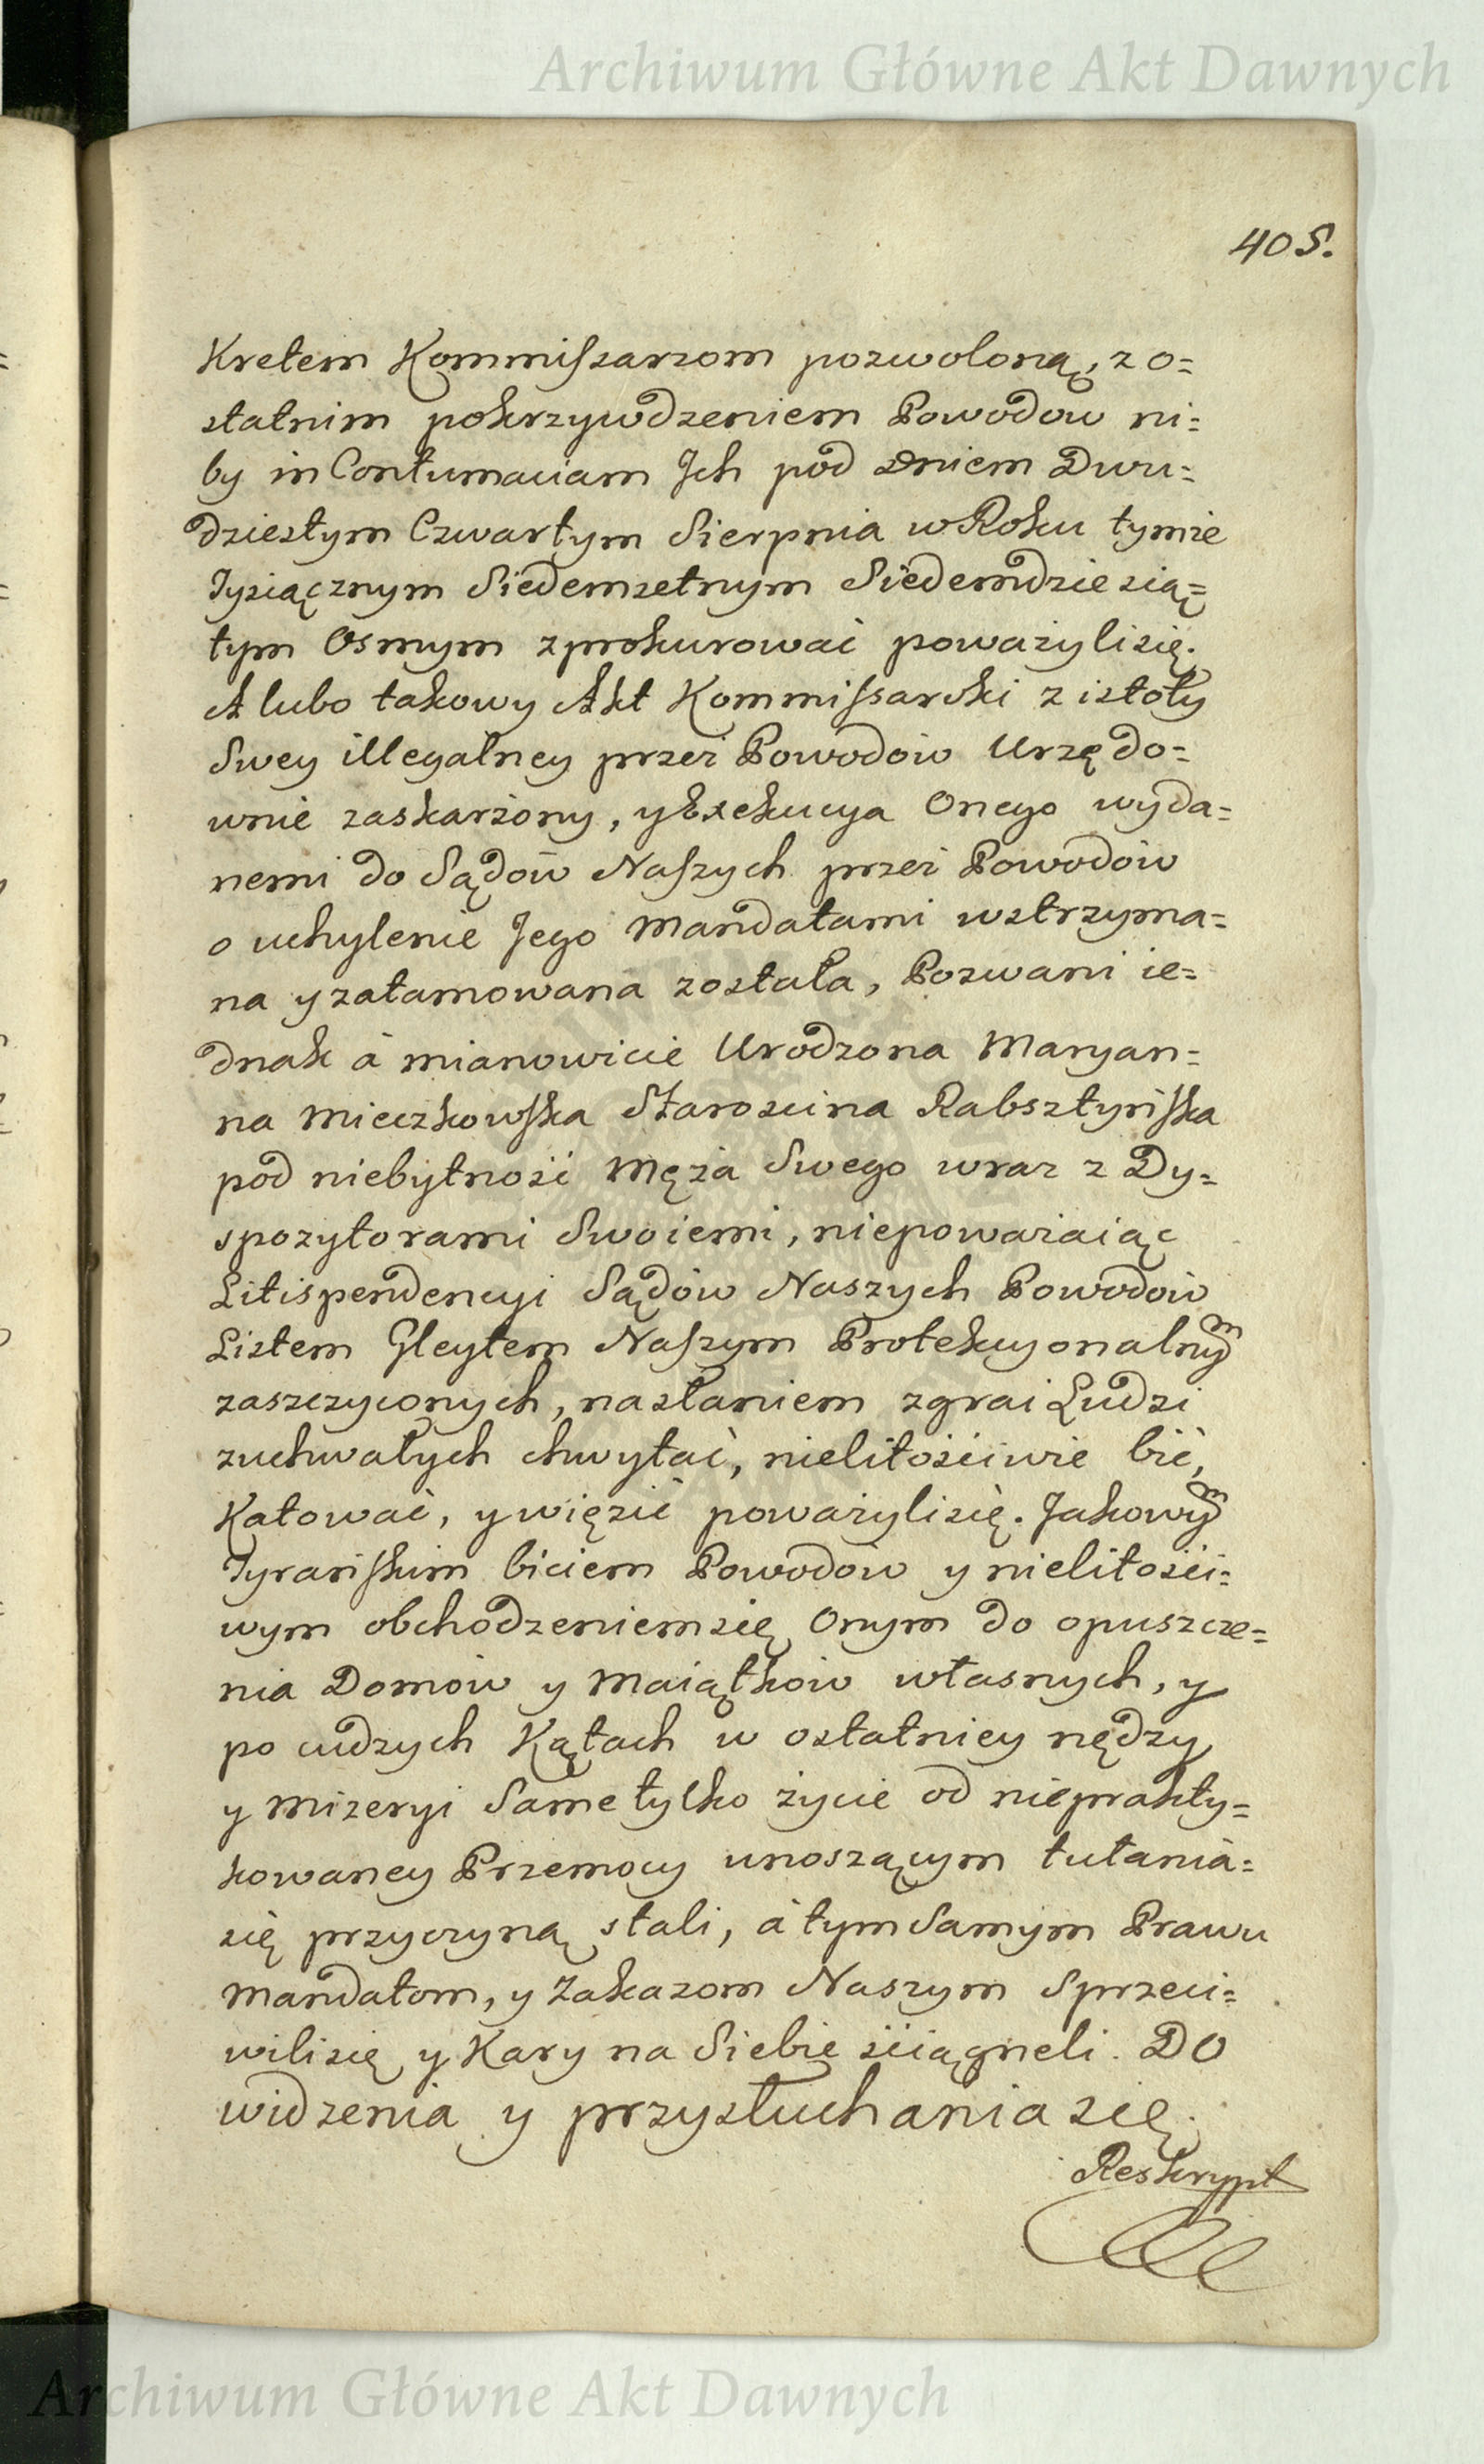 Archiwum Główne Akt Dawnych
405.
Kretem Kommiſsarzom pozwoloną, z o=
statnim pokrzywdzeniem Powodow ni=
by in Contumaciam Jch pod Dniem Dwu=
dziestym Czwartym Sierpnia w Roku tymże
Tysiącznym Siedemsetnym Siedemdziesią=
tym Osmym zprokurować poważylisię.
A lubo takowy Akt Kommiſsarski z istoty
Swey illegalney przez Powodow Urzędo=
wnie zaskarżony, y Exekucya Onego wyda=
nemi do Sądow Naſzych przez Powodow
o uchylenie Jego Mandatami wstrzyma=
na y zatamowana została, Pozwani ie=
dnak à mianowicie Urodzona Maryan=
na Mieczkowſka Starościna Rabsztyńſka
pod niebytność Męża Swego wraz z Dy=
spozytorami Swoiemi, niepoważaiąc
Litispendencyi Sądów Naszych Powodow
Listem Gleytem Naſzym Protekcyonalnym
zaszczyconych, nasłaniem zgrai Ludzi
zuchwałych chwytać, nielitościwie bić,
Katować, y więzić poważylisię. Jakowym
Tyrańſkim biciem Powodow y nielitości=
wym obchodzeniemsię Onym do opuszcze=
nia Domow y Maiątkow własnych, y
po cudzych Kątach w ostatniey nędzy
y Mizeryi Same tylko życie od nieprakty=
kowaney Przemocy unoszącym tułania=
się przyczyną stali, à tym Samym Prawu
Mandatom, y Zakazom Naszym Sprzeci=
wilisię y Kary na Siebie ściągneli. DO
widzenia y przysłuchania się.
Reskrypt
Archiwum Główne Akt Dawnych